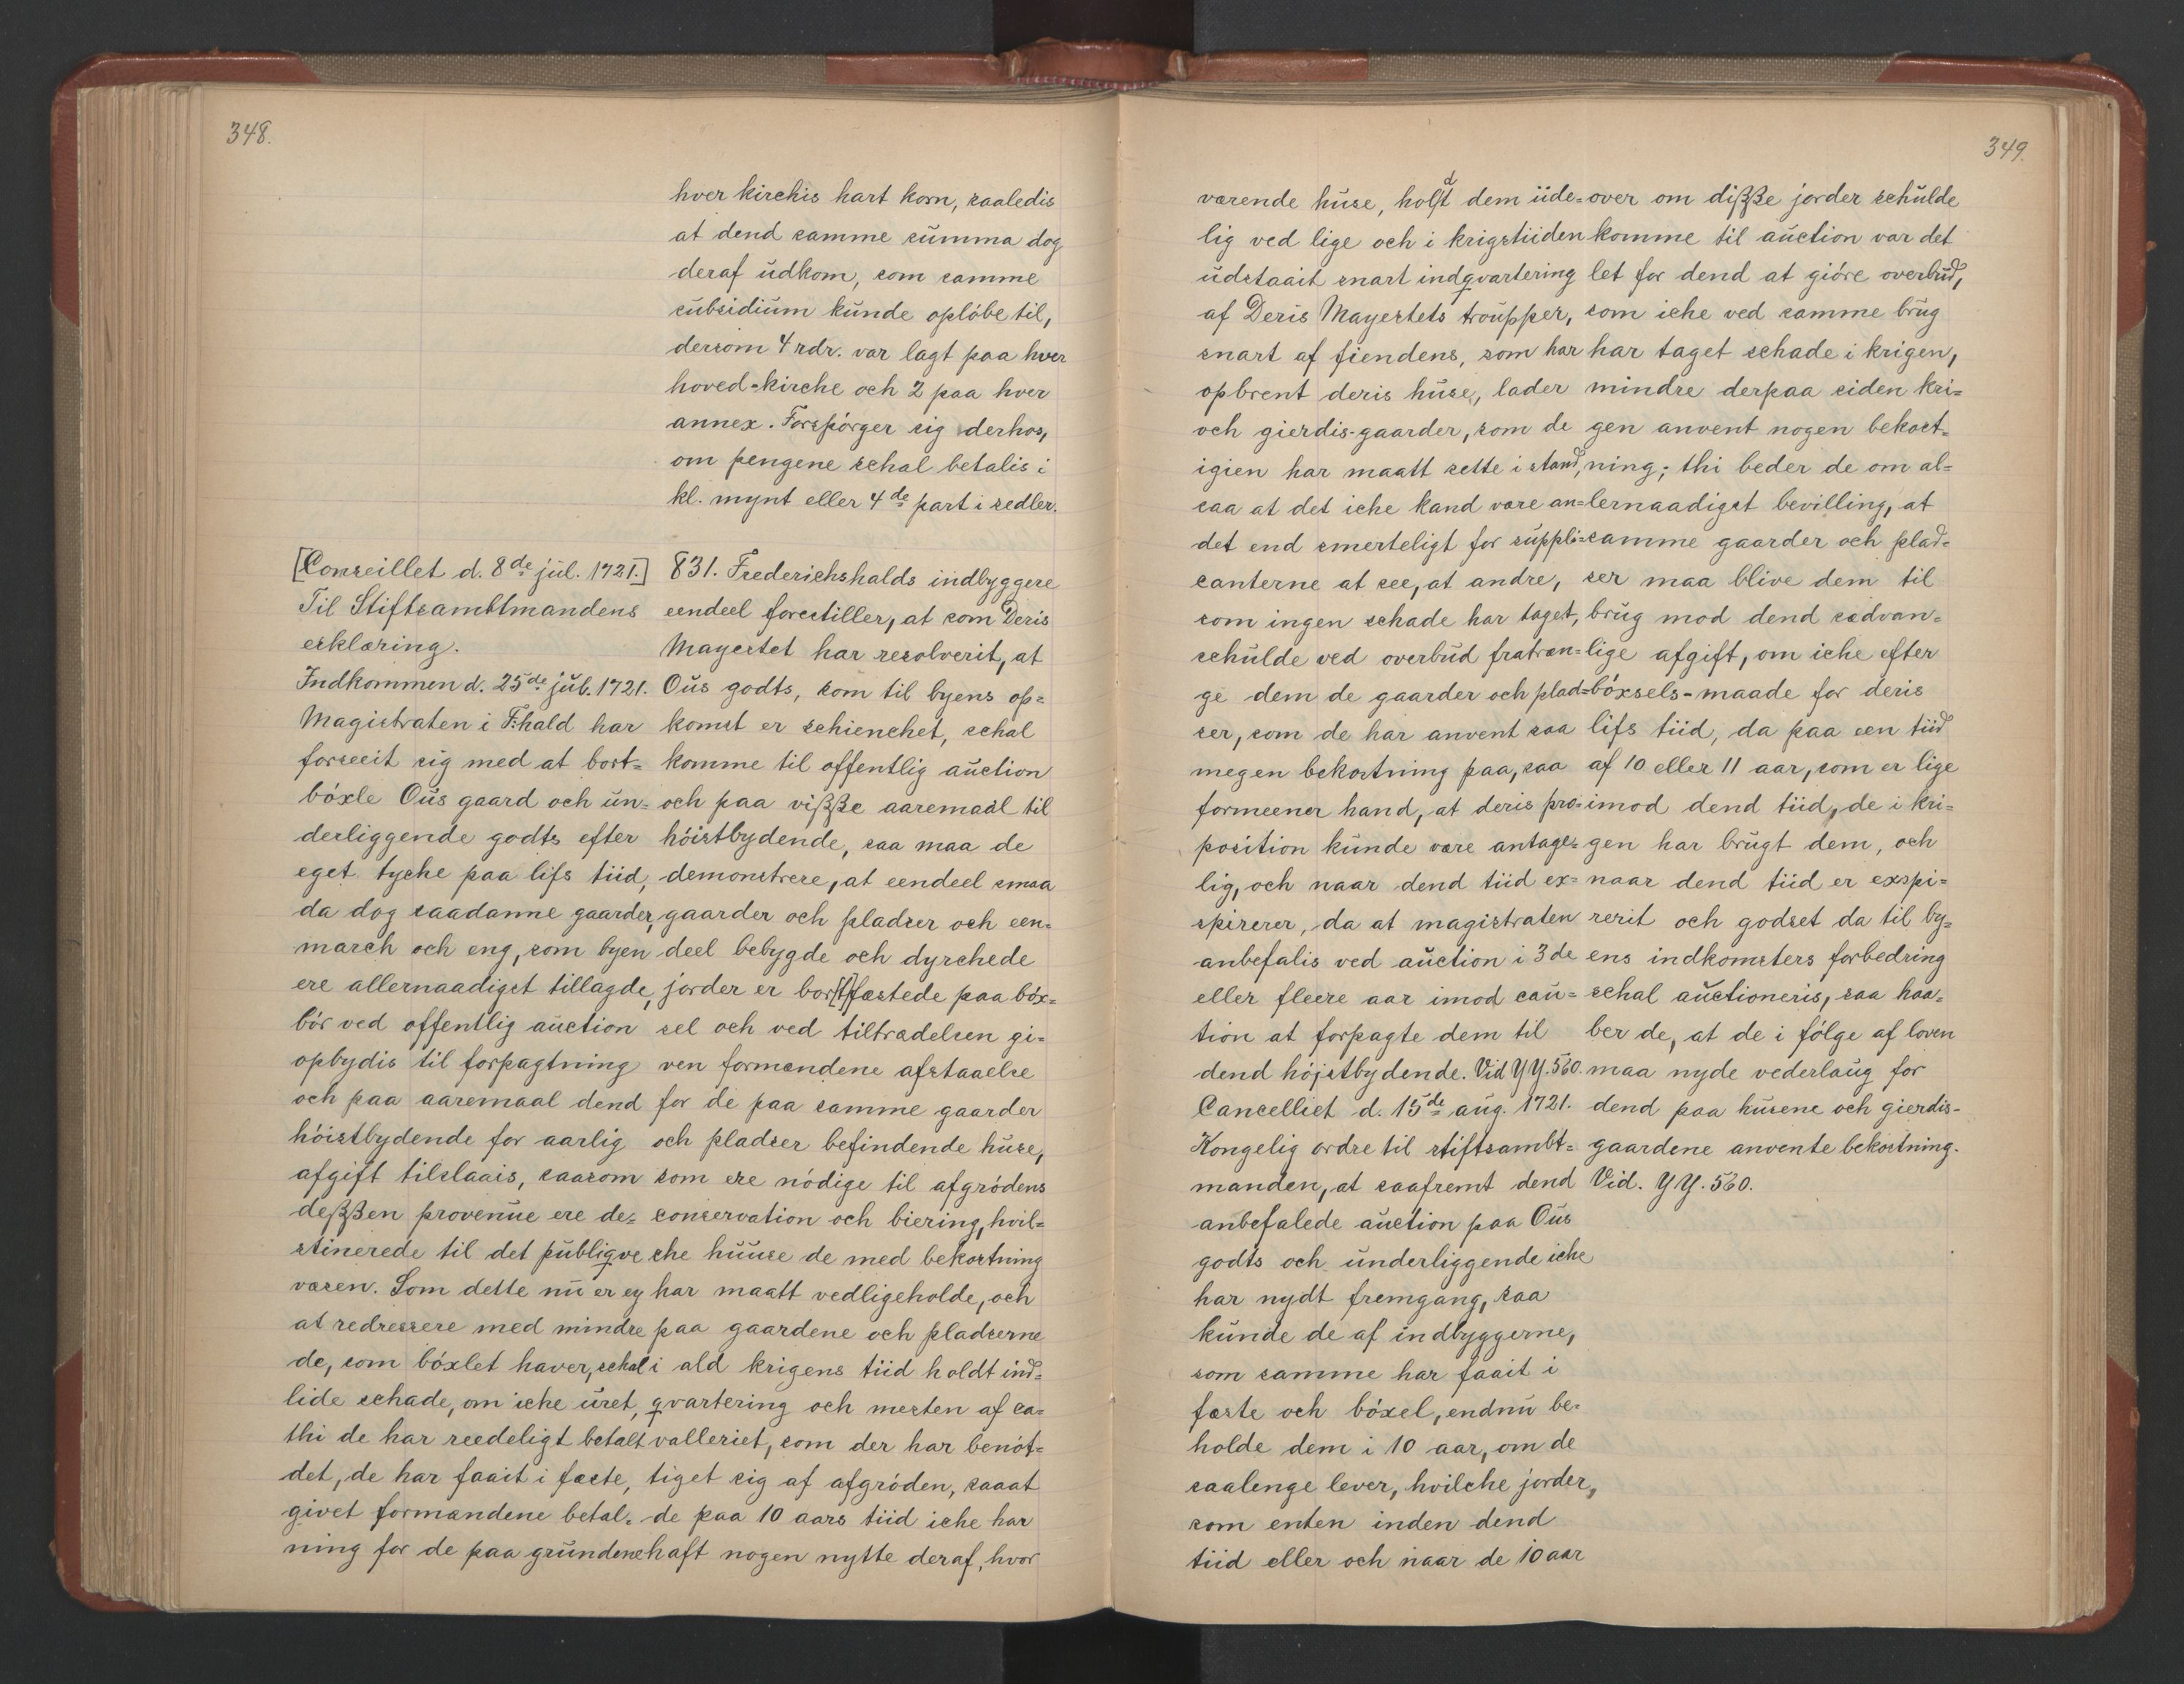 348.
hver kirchis hart korn, saaledis
at dend samme summa dog
deraf udkom, som samme
subsidium kunde opløbe til,
dersom 4 rdr. var lagt paa hver
hoved-kirche och 2 paa hver
annex. Forspørger sig derhos,
om pengene schal betalis i
kl. mynt eller 4de part i sedler.
[Conseillet d. 8de jul. 1721.]
Til Stiftsambtmandens
erklæring.
Indkommen d. 25de jul. 1721.
Magistraten i F:hald har
forseeit sig med at bort=
bóxle Ous gaard och un=
derliggende godts efter
eget tyche paa lifs tiid,
da dog saadanne gaarder,
march och eng, som byen
ere allernaadigst tillagde,
bór ved offentlig auction
opbydis til forpagtning
och paa aaremaal dend
hóistbydende for aarlig
afgift tilslaais, saasom
deßßen provenue ere de=
stinerede til det publiqve
væsen. Som dette nu er ey
at redressere med mindre
de, som bóxlet haver, schal
lide schade, om iche uret,
thi de har reedeligt betalt
det, de har faait i fæste,
givet formændene betal=
ning for de paa grundene
831. Frederichshalds indbyggere
eendeel forestiller, at som Deris
Mayestet har resolverit, at
Ous godts, som til byens op=
komst er schienchet, schal
komme til offentlig auction
och paa vißße aaremaal til
hóistbydende, saa maa de
demonstrere, at eendeel smaa
gaarder och pladser och een=
deel bebygde och dyrchede
jorder er bor[t]fæstede paa bóx=
sel och ved tiltrædelsen gi=
ven formændene afstaaelse
for de paa samme gaarder
och pladser befindende huse,
som ere nódige til afgródens
conservation och biering, hvil=
che huuse de med bekostning
har maatt vedligeholde, och
paa gaardene och pladserne
i ald krigens tiid holdt ind=
qvartering och mesten af ca=
valleriet, som der har benót=
tiget sig af afgróden, saaat
de paa 10 aars tiid iche har
haft nogen nytte deraf, hvor
349.
værende huse, holdt dem üde=
lig ved lige och i krigstiiden
udstaait snart indqvartering
af Deris Mayestets troupper,
snart af fiendens, som har
opbrent deris huse, lader
och gierdis-gaarder, som de
igien har maatt sette i stand,
saa at det iche kand være an=
det end smerteligt for suppli=
canterne at see, at andre,
som ingen schade har taget,
schulde ved overbud fratræn=
ge dem de gaarder och plad=
ser, som de har anvent saa
megen bekostning paa, saa
formeener hand, at deris pro=
position kunde være antage=
lig, och naar dend tiid ex=
spirerer, da at magistraten
anbefalis ved auction i 3de
eller fleere aar imod cau=
tion at forpagte dem til
dend hójstbydende. Vid YY. 560.
Cancelliet d. 15de aug. 1721.
Kongelig ordre til stiftsambt=
manden, at saafremt dend
anbefalede auction paa Ous
godts och underliggende iche
har nydt fremgang, saa
kunde de af indbyggerne,
som samme har faait i
fæste och bóxel, endnu be=
holde dem i 10 aar, om de
saalenge lever, hvilche jorder,
som enten inden dend
tiid eller och naar de 10 aar
over om dißße jorder schulde
komme til auction var det
let for dend at gióre overbud,
som iche ved samme brug
har taget schade i krigen,
mindre derpaa siden kri=
gen anvent nogen bekost=
ning; thi beder de om al=
lernaadigst bevilling, at
samme gaarder och plad=
ser maa blive dem til
brug mod dend sædvan=
lige afgift, om iche efter
bóxsels-maade for deris
lifs tiid, da paa een tiid
af 10 eller 11 aar, som er lige
imod dend tiid, de i kri=
gen har brugt dem, och
naar dend tiid er exspi=
rerit och godset da til by=
ens indkomsters forbedring
schal auctioneris, saa haa=
ber de, at de i fólge af loven
maa nyde vederlaug for
dend paa husene och gierdis-
gaardene anvente bekostning.
Vid. YY. 560.